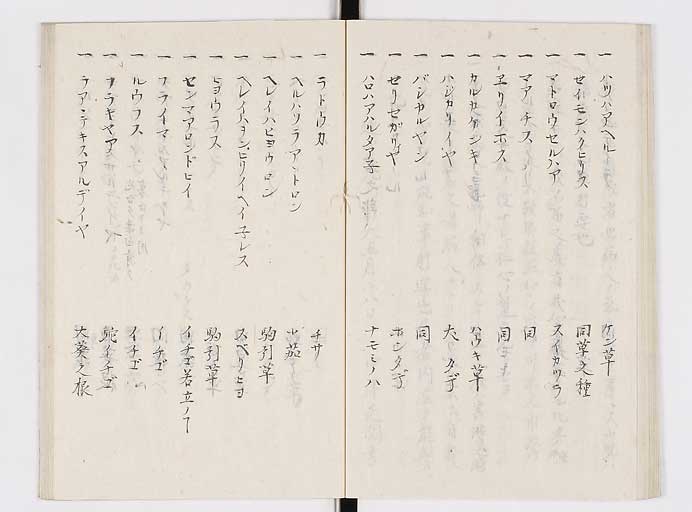 一 ハツハアヘル ケン草
一 セイモンハクヒリス 同草之種
一 マトロウセルハア スイカツラ
一 マアチス 同
一 ヱリイホス 同
一 カルカケンキ ハウキ草
一 ハシカリイヤ 犬タデ
一 バシカルヤン 同
一 セリセガリヤ ホシタデ
一 ハロハアハルタア子 ナモミノハ
一 ラトウカ チサ
一 ヘルハソラアントロン 小茄
一 ヘレイハヒヨウロン 駒引草
一 ヘレイハヨンヒリイヘイ子レス スベリヒヨ
一 ヒヨウラス 駒引草
一 センマアロンドヒイ イチゴ若立ノ丁
一 フライマ イチゴ
一 ルウフス イチゴ
一 フラキヤマア 蛇イチゴ
一 ラアンテキスアルデイヤ 大葵之根